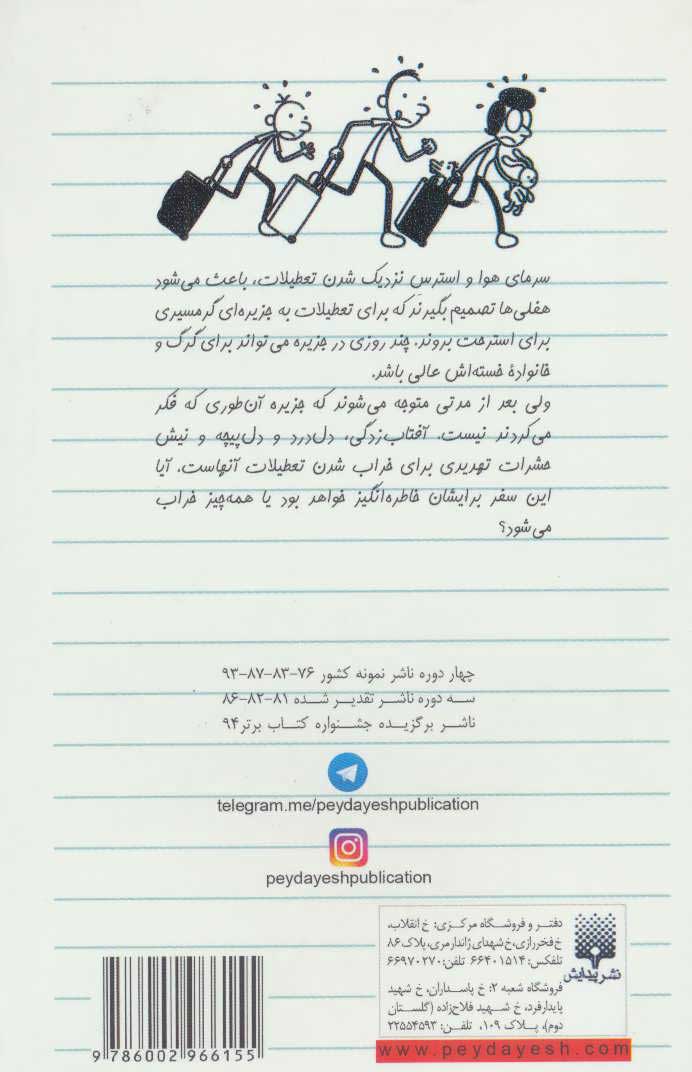 سرمای هوا و استرس نزدیک شدن تعطیلات، باعث می‌شود
هفلی‌ها تصمیم بگیرند که برای تعطیلات به جزیره‌ای گرمسیری
برای استرحت بروند. چند روزی در جزیره می‌تواند برای گرگ و
خانوادهٔ خسته‌اش عالی باشد.
ولی بعد از مدتی متوجه می‌شوند که جزیره آن‌طوری که فکر
می‌کردند نیست. آفتاب‌زدگی، دل‌درد و دل‌پیچه و نیش
حشرات تهدیدی برای خراب شدن تعطیلات آنهاست. آیا
این سفر برایشان خاطره‌انگیز خواهد بود یا همه‌چیز خراب
می‌شود؟
چهار دوره ناشر نمونه کشور ۷۶-۸۳-۸۷-۹۳
سه دوره ناشر تقدیر شده ۸۱-۸۲-۸۶
ناشر برگزیده جشنواره کتاب برتر۹۴
telegram.me/peydayeshpublication
peydayeshpublication
دفتر و فروشگاه مرکزی: خ انقلاب،
خ فخررازی، خ شهدای ژاندارمری، پلاک ۸۶
تلفکس: ۶۶۴۰۱۵۱۴ تلفن: ۶۶۹۷۰۲۷۰
فروشگاه شعبه ۲: خ پاسداران، خ شهید
پایدارفرد، خ شهید فلاح‌زاده (گلستان
دوم)، پلاک ۱۰۹، تلفن: ۲۲۵۵۴۵۹۳
نشر پیدایش
www.peydayesh.com
9 786002 966155